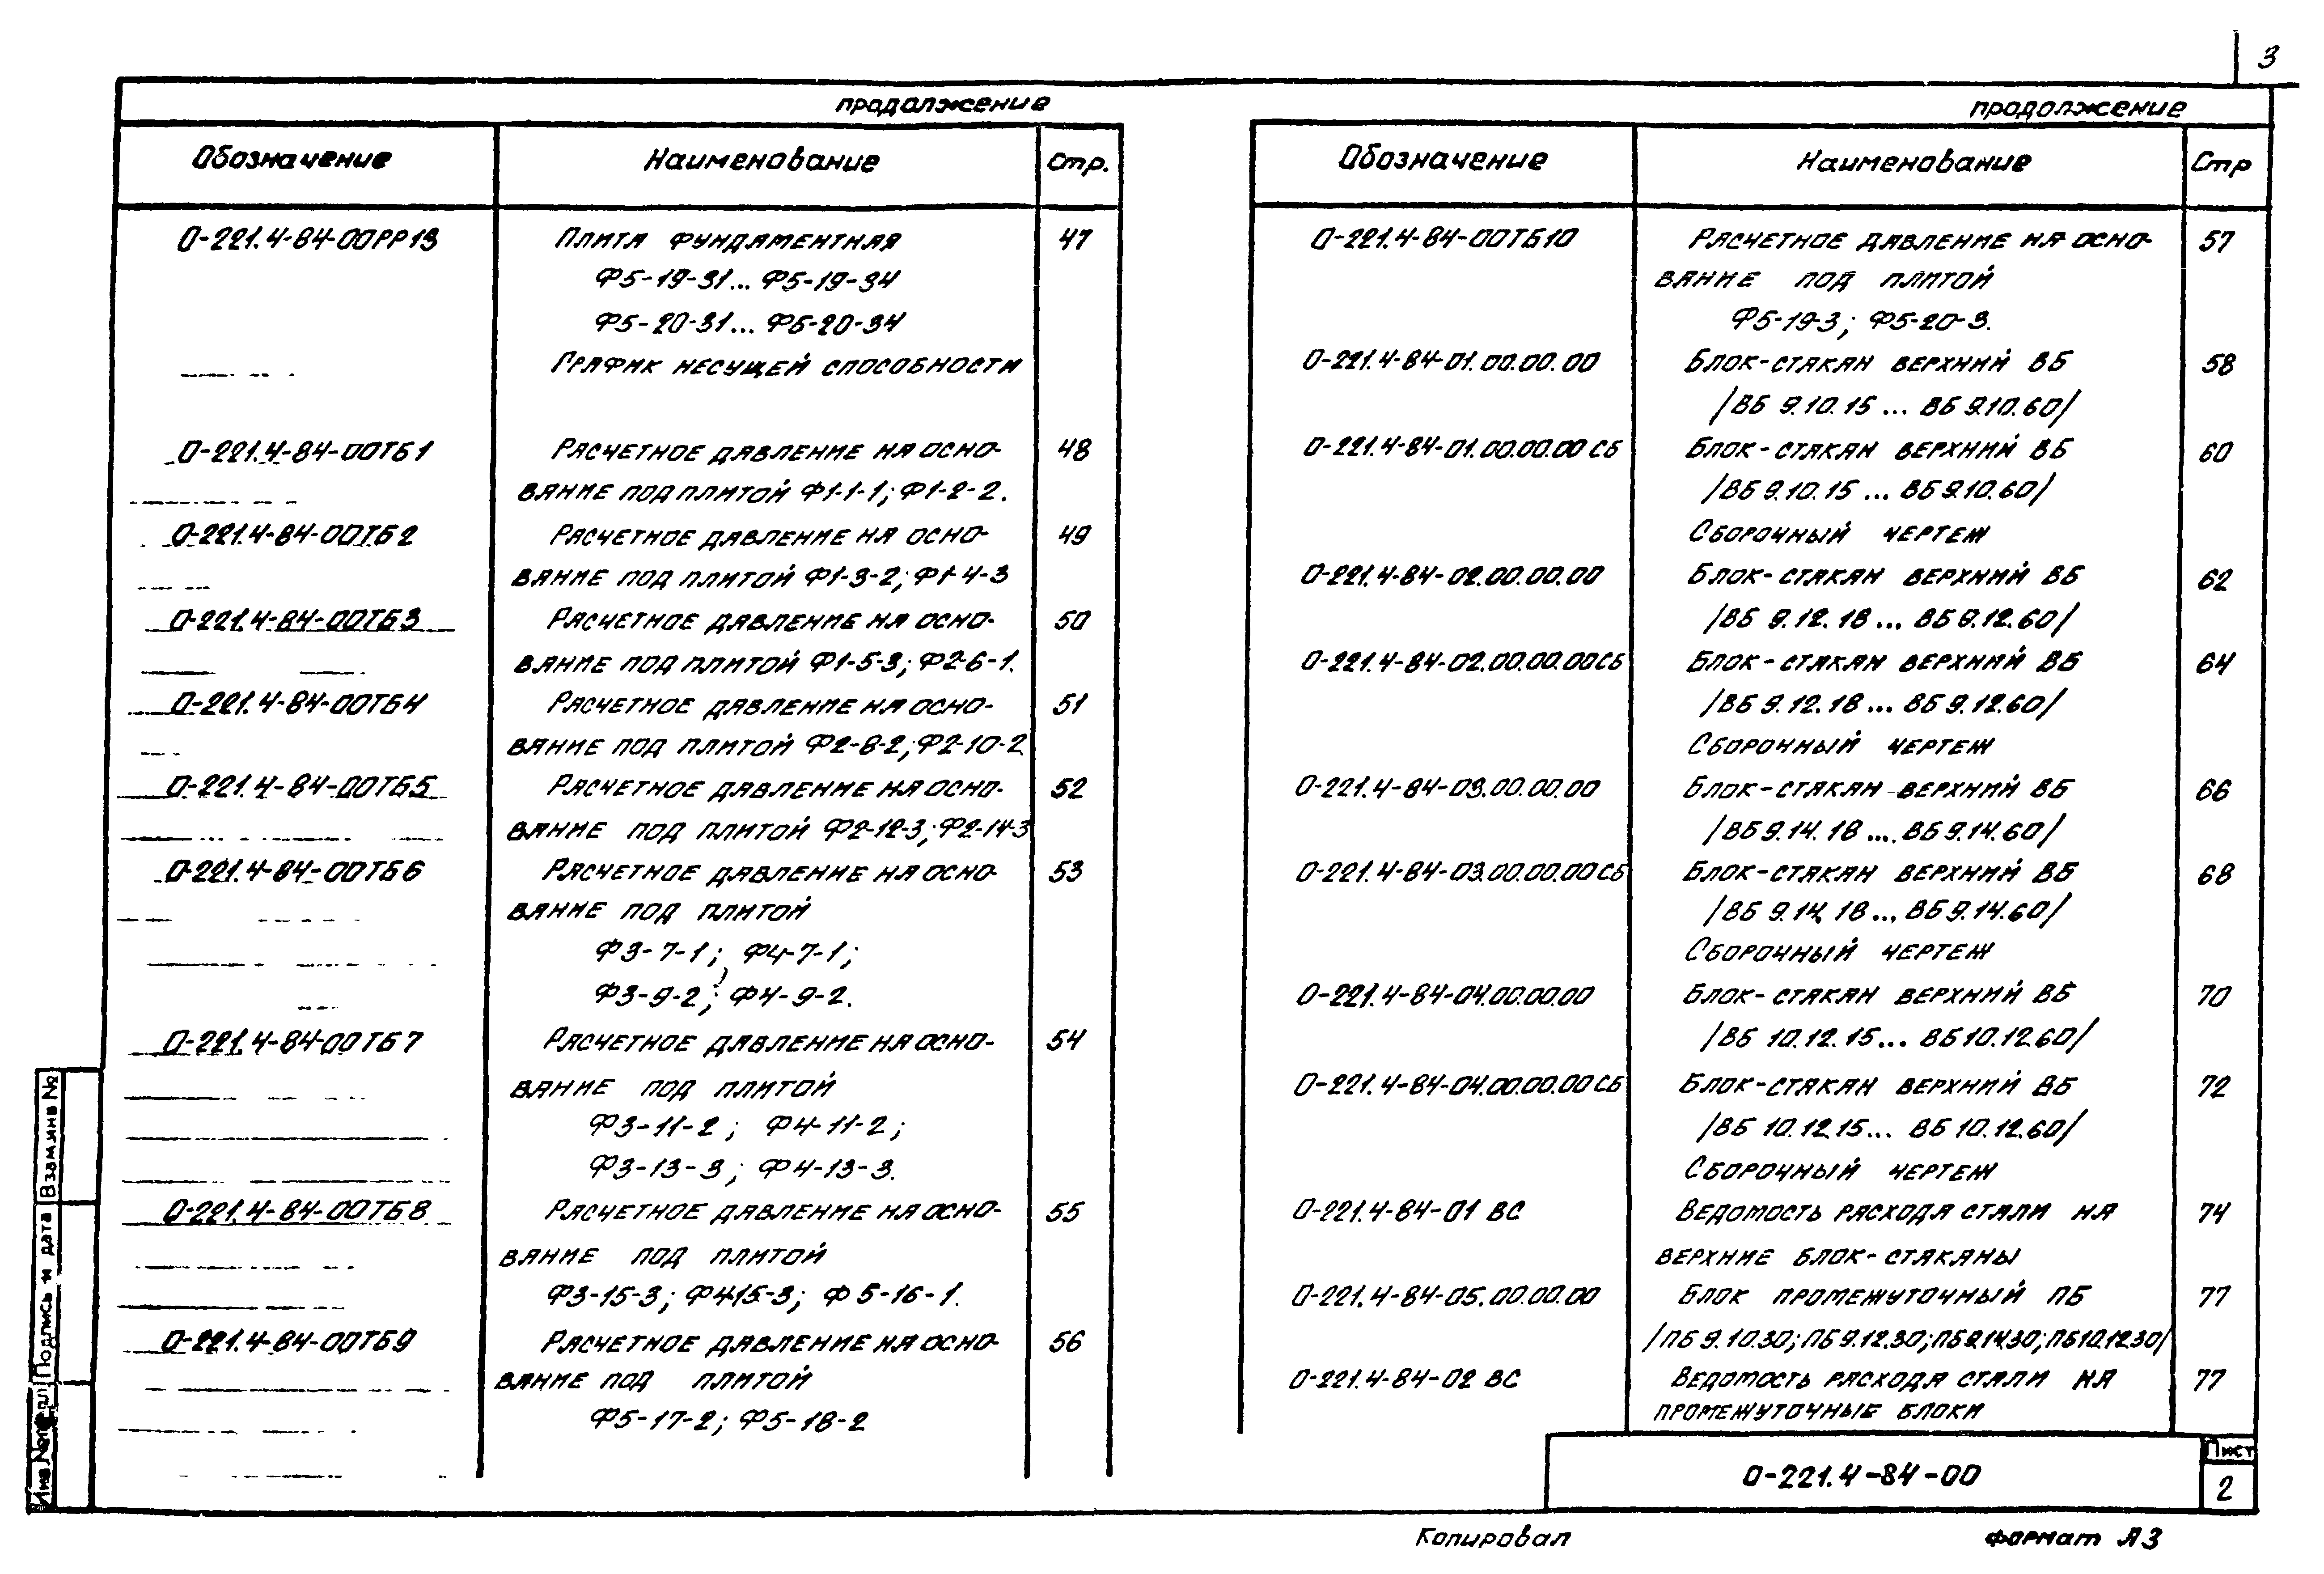 3
продолжение
Обозначение Наименование Стр.
О-221.4-84-00РР13 Плита фундаментная 47
Ф5-19-31... Ф5-19-34
Ф5-20-31... Ф5-20-34
График несущей способности
О-221.4-84-00ТБ1 Расчетное давление на осно- 48
вание под плитой Ф1-1-1; Ф1-2-2.
О-221.4-84-00ТБ2 Расчетное давление на осно- 49
вание под плитой Ф1-3-2; Ф1-4-3
О-221.4-84-00ТБ3 Расчетное давление на осно- 50
вание под плитой Ф1-5-3; Ф2-6-1.
О-221.4-84-00ТБ4 Расчетное давление на осно- 51
вание под плитой Ф2-8-2; Ф2-10-2
О-221.4-84-00ТБ5 Расчетное давление на осно- 52
вание под плитой Ф2-12-3; Ф2-14-3
О-221.4-84-00ТБ6 Расчетное давление на осно- 53
вание под плитой
Ф3-7-1; Ф4-7-1;
Ф3-9-2; Ф4-9-2.
О-221.4-84-00ТБ7 Расчетное давление на осно- 54
вание под плитой
Ф3-11-2; Ф4-11-2;
Ф3-13-3; Ф4-13-3.
О-221.4-84-00ТБ8 Расчетное давление на осно- 55
вание под плитой
Ф3-15-3; Ф4-15-3; Ф5-16-1.
О-221.4-84-00ТБ9 Расчетное давление на осно- 56
вание под плитой
Ф5-17-2; Ф5-18-2
продолжение
Обозначение Наименование Стр
О-221.4-84-00ТБ10 Расчетное давление на осно- 57
вание под плитой
Ф5-19-3; Ф5-20-3.
О-221.4-84-01.00.00.00 Блок-стакан верхний ВБ 58
/ВБ 9.10.15 ... ВБ 9.10.60/
О-221.4-84-01.00.00.00 СБ Блок-стакан верхний ВБ 60
/ВБ 9.10.15 ... ВБ 9.10.60/
Сборочный чертеж
О-221.4-84-02.00.00.00 Блок-стакан верхний ВБ 62
/ВБ 9.12.18 ... ВБ 9.12.60/
О-221.4-84-02.00.00.00СБ Блок-стакан верхний ВБ 64
/ВБ 9.12.18 ... ВБ 9.12.60/
Сборочный чертеж
О-221.4-84-03.00.00.00 Блок-стакан верхний ВБ 66
/ВБ 9.14.18 .... ВБ 9.14.60/
О-221.4-84-03.00.00.00 СБ Блок-стакан верхний ВБ 68
/ВБ 9.14.18 ... ВБ 9.14.60/
Сборочный чертеж
О-221.4-84-04.00.00.00 Блок-стакан верхний ВБ 70
/ВБ 10.12.15... ВБ 10.12.60/
О-221.4-84-04.00.00.00 СБ Блок-стакан верхний ВБ 72
/ВБ 10.12.15... ВБ 10.12.60/
Сборочный чертеж
О-221.4-84-01 ВС Ведомость расхода стали на 74
верхние блок-стаканы
О-221.4-84-05.00.00.00 Блок промежуточный ПБ 77
/ПБ 9.10.30; ПБ 9.12.30; ПБ 9.14.30; ПБ 10.12.30/
О-221.4-84-02 ВС Ведомость расхода стали на 77
промежуточные блоки
О-221.4-84-00
Лист
2
Копировал Формат А3
Инв № подл
Подпись и дата
Взам инв №